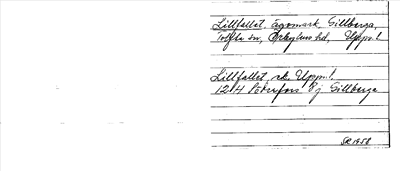 Lillfallet, ägomark, Gillberga,
Tolfta sn, Örbyhus hd, Upps. l.
Lillfallet, rk. Upps. l.
12 4 Gillberga
SR 1958